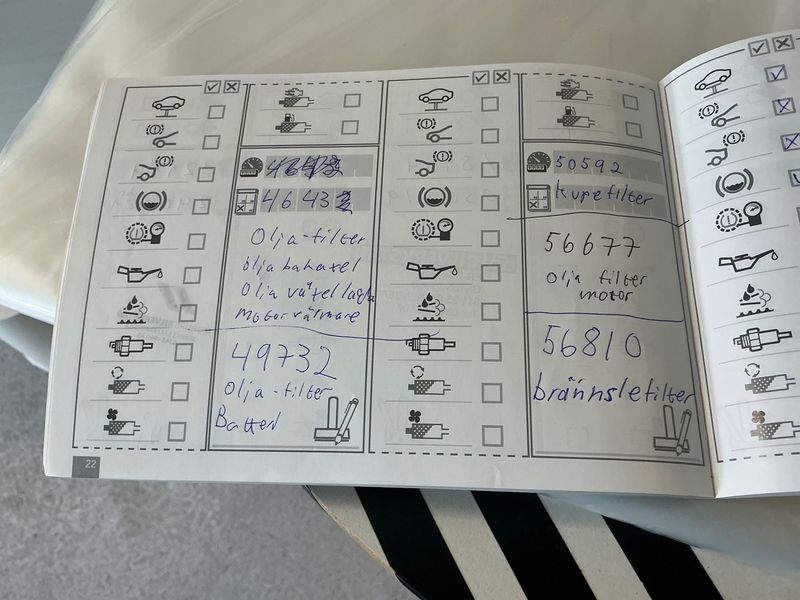 4643
Olja-filter
olja bakaxel
Olja växellåda
motorvärmare
49732
Olja-filter
Batteri
22
50592
kupefilter
56677
olja filter
motor
56810
brännslefilter